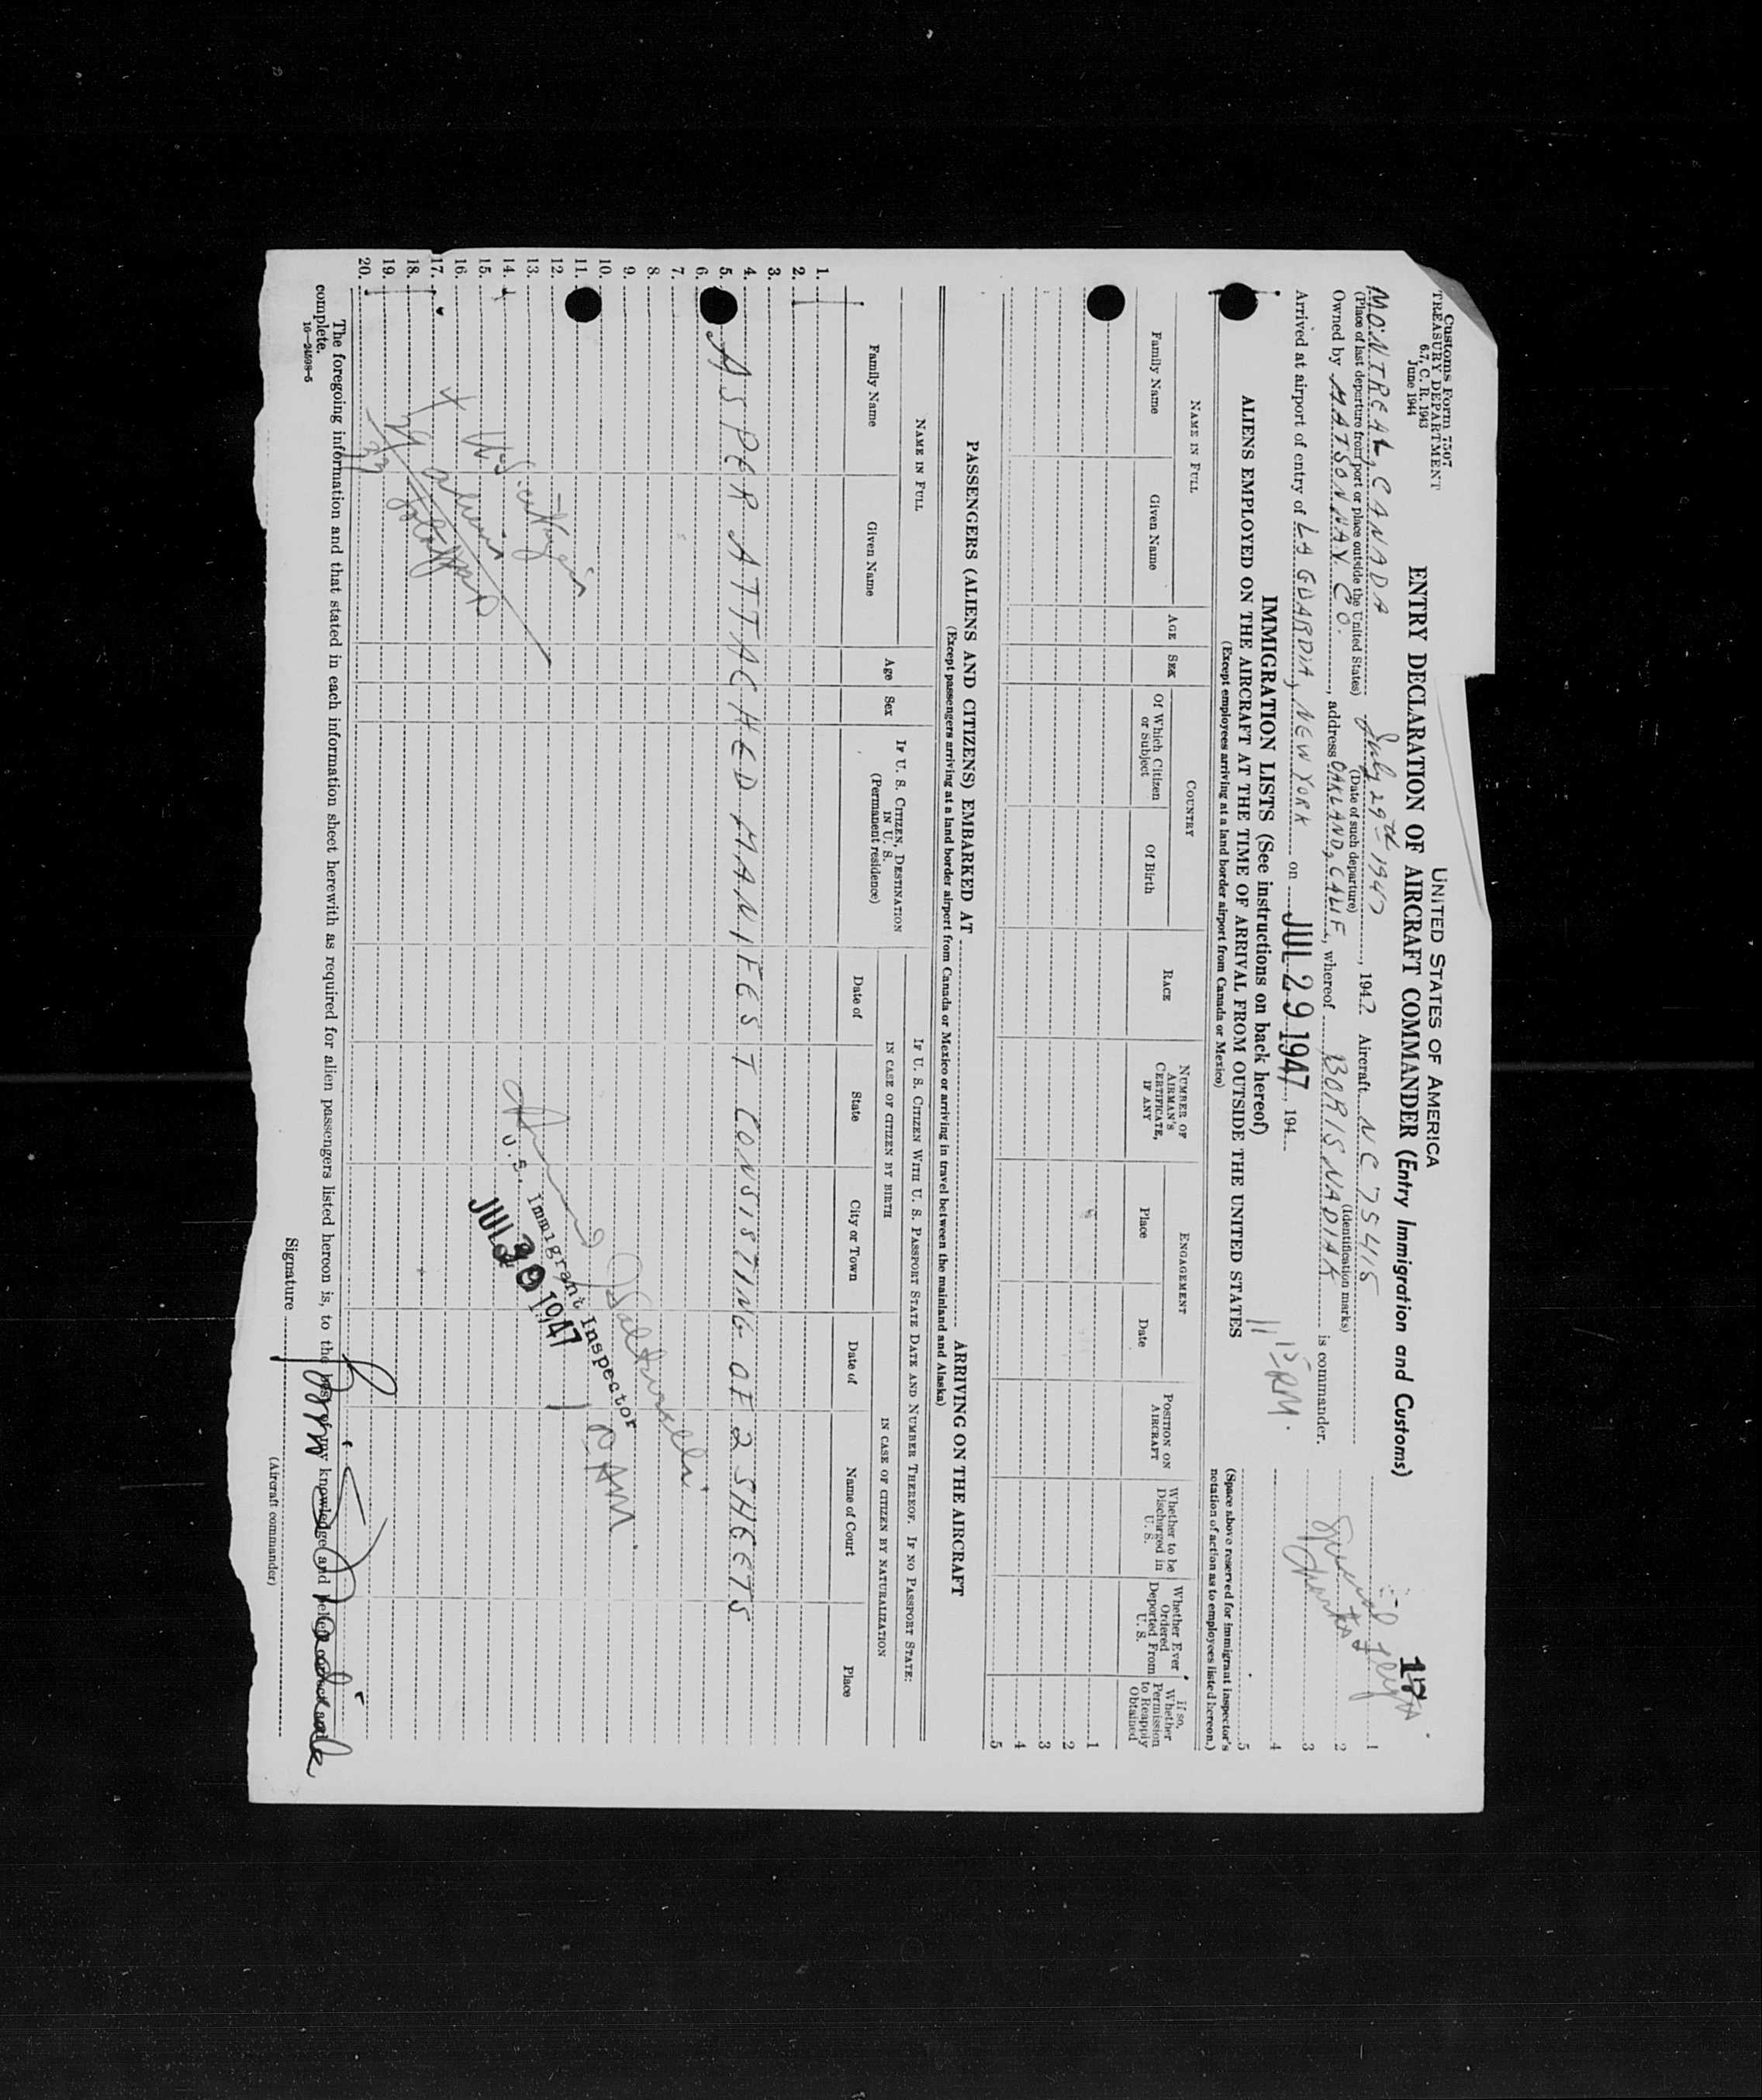 Customs Form 7507
TREASURY DEPARTMENT
6.7, C. R. 1943
June 1944
UNITED STATES OF AMERICA
ENTRY DECLARATION OF AIRCRAFT COMMANDER (Entry Immigration and Customs)
17
MONTREAL, CANADA July 29th 1947, 1947. Aircraft NC 75415
(Place of last departure from port or place outside the United States) (Date of such departure) (Identification marks)
Owned by MATSON NAV. CO., address OAKLAND, CALIF., whereof BORIS NADIAK is commander.
Arrived at airport of entry of LA GUARDIA, NEW YORK on JUL 29 1947, 194
IMMIGRATION LISTS (See instructions on back hereof)
ALIENS EMPLOYED ON THE AIRCRAFT AT THE TIME OF ARRIVAL FROM OUTSIDE THE UNITED STATES
(Except employees arriving at a land border airport from Canada or Mexico)
1
2
3
4
5
(Space above reserved for immigrant inspector's notation of action as to employees listed hereon.)
NAME IN FULL
Family Name
Given Name
AGE
SEX
COUNTRY
Of Which Citizen or Subject
Of Birth
RACE
NUMBER OF AIRMAN'S CERTIFICATE, IF ANY
ENGAGEMENT
Place
Date
POSITION ON AIRCRAFT
Whether to be Discharged in U. S.
Whether Ever Ordered Deported From U. S.
If so, Whether Permission to Reapply Obtained
1
2
3
4
5
PASSENGERS (ALIENS AND CITIZENS) EMBARKED AT ARRIVING ON THE AIRCRAFT
(Except passengers arriving at a land border airport from Canada or Mexico or arriving in travel between the mainland and Alaska)
NAME IN FULL
Family Name
Given Name
Age
Sex
IF U. S. CITIZEN, DESTINATION IN U. S.
(Permanent residence)
IF U. S. CITIZEN WITH U. S. PASSPORT STATE DATE AND NUMBER THEREOF. IF NO PASSPORT STATE:
IN CASE OF CITIZEN BY BIRTH
IN CASE OF CITIZEN BY NATURALIZATION
Date of
State
City or Town
Date of
Name of Court
Place
1.
2.
3.
4.
5. AS PER ATTACHED MANIFEST CONSISTING OF 2 SHEETS
6.
7.
8.
9.
10.
11.
12.
13.
14.
15.
16.
17.
18.
19.
20.
U.S. Immigrant Inspector
1947
The foregoing information and that stated in each information sheet herewith as required for alien passengers listed hereon is, to the best of my knowledge and belief, correct and
complete.
16—24598-5
Signature Boris Nadiak
(Aircraft commander)